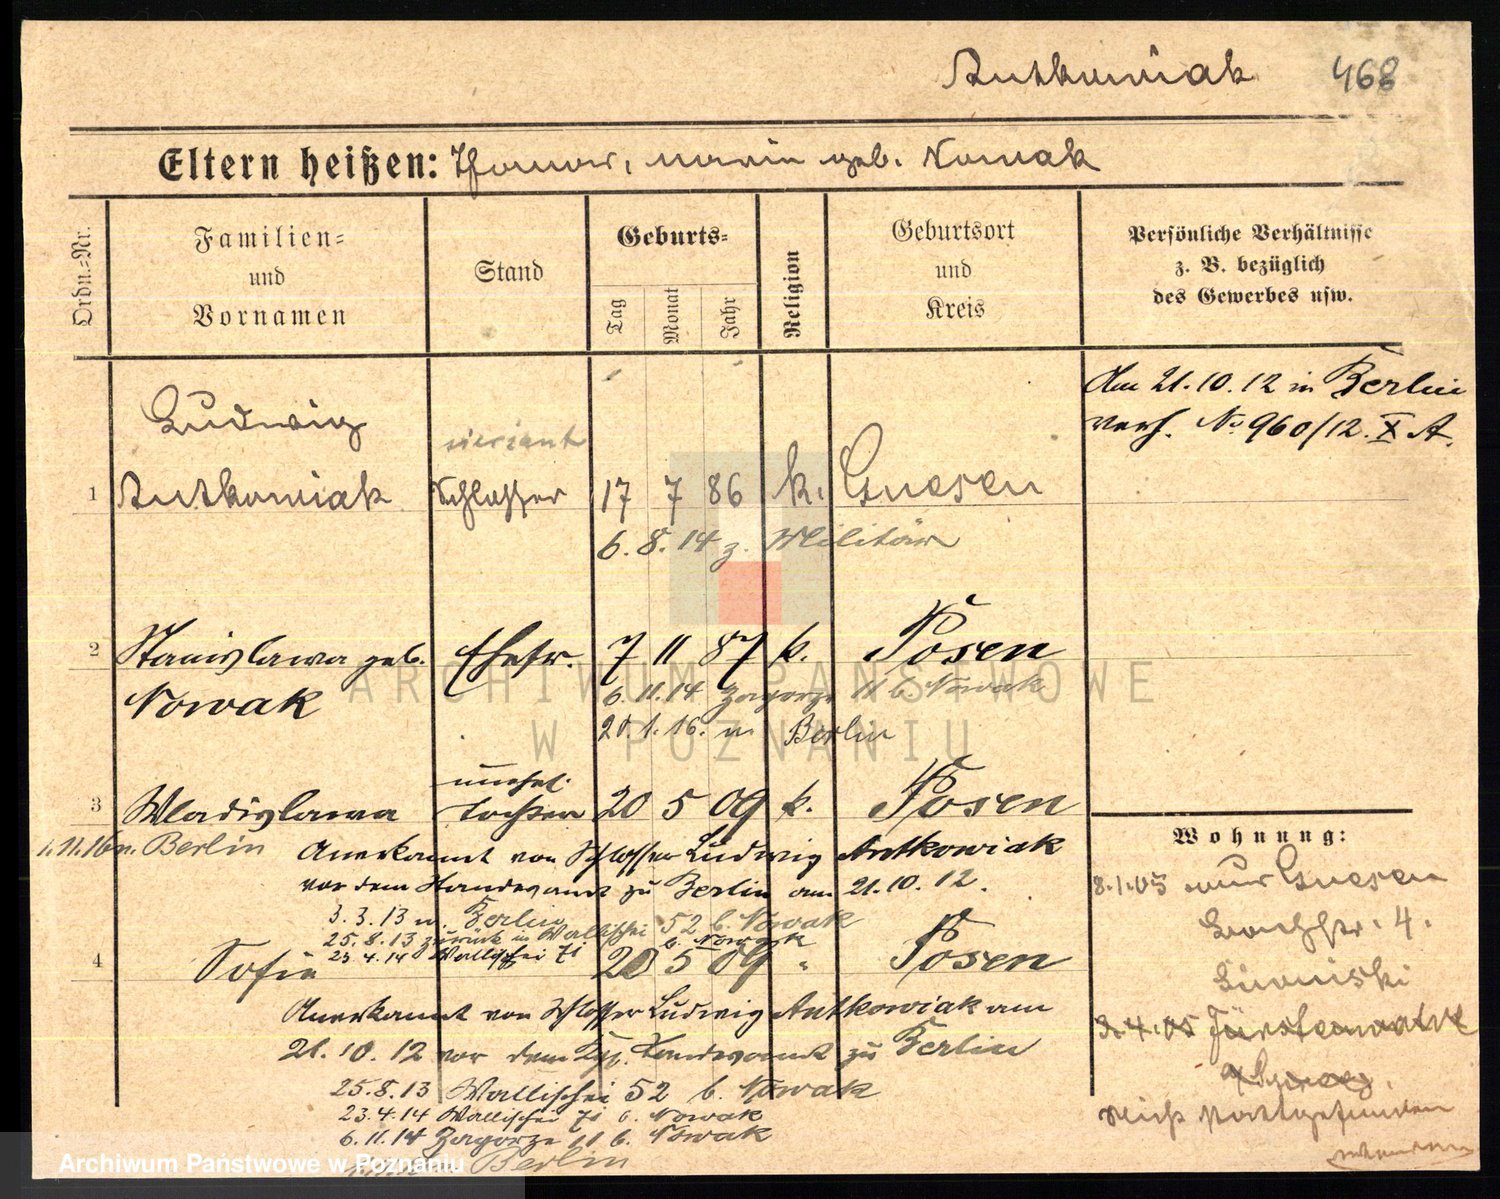 Antkowiak 468
Eltern heißen: Thomas, Maria geb. Nowak
Ordn.-Nr.
Familien-
und
Vornamen
Stand
Geburts-
Tag
Monat
Jahr
Religion
Geburtsort
und
Kreis
Persönliche Verhältnisse
z. B. bezüglich
des Gewerbes usw.
Am 21.10.12 in Berlin
verh. No 960/12. X A.
Ludwig
1 Antkowiak Schlosser 17 7 86 k. Gnesen
6.8.14 z. Militär
2 Stanislawa geb. Ehefr. 7 11 87 k. Posen
Nowak
6.11.14 Zagorze 11 b. Nowak
20.1.16. n. Berlin
unehel.
3 Wladislawa Tochter 20 5 09 k. Posen
1.11.16 n. Berlin
Anerkannt von Schlosser Ludwig Antkowiak
vor dem Standesamt zu Berlin am 21.10.12.
3.3.13 n. Berlin
25.8.13 zurück in Wallischei 52 b. Nowak
23.4.14 Wallischei 71 b. Nowak
4 Sofie 20 5 09 " Posen
Anerkannt von Schlosser Ludwig Antkowiak am
21.10.12 vor dem Kgl. Standesamt zu Berlin
25.8.13 Wallischei 52 b. Nowak
23.4.14 Wallischei 71 b. Nowak
6.11.14 Zagorze 11 b. Nowak
Berlin
Wohnung:
8.1.05 Gnesen
4.
3.4.05
nicht stattgefunden
ARCHIWUM PAŃSTWOWE
W POZNANIU
Archiwum Państwowe w Poznaniu